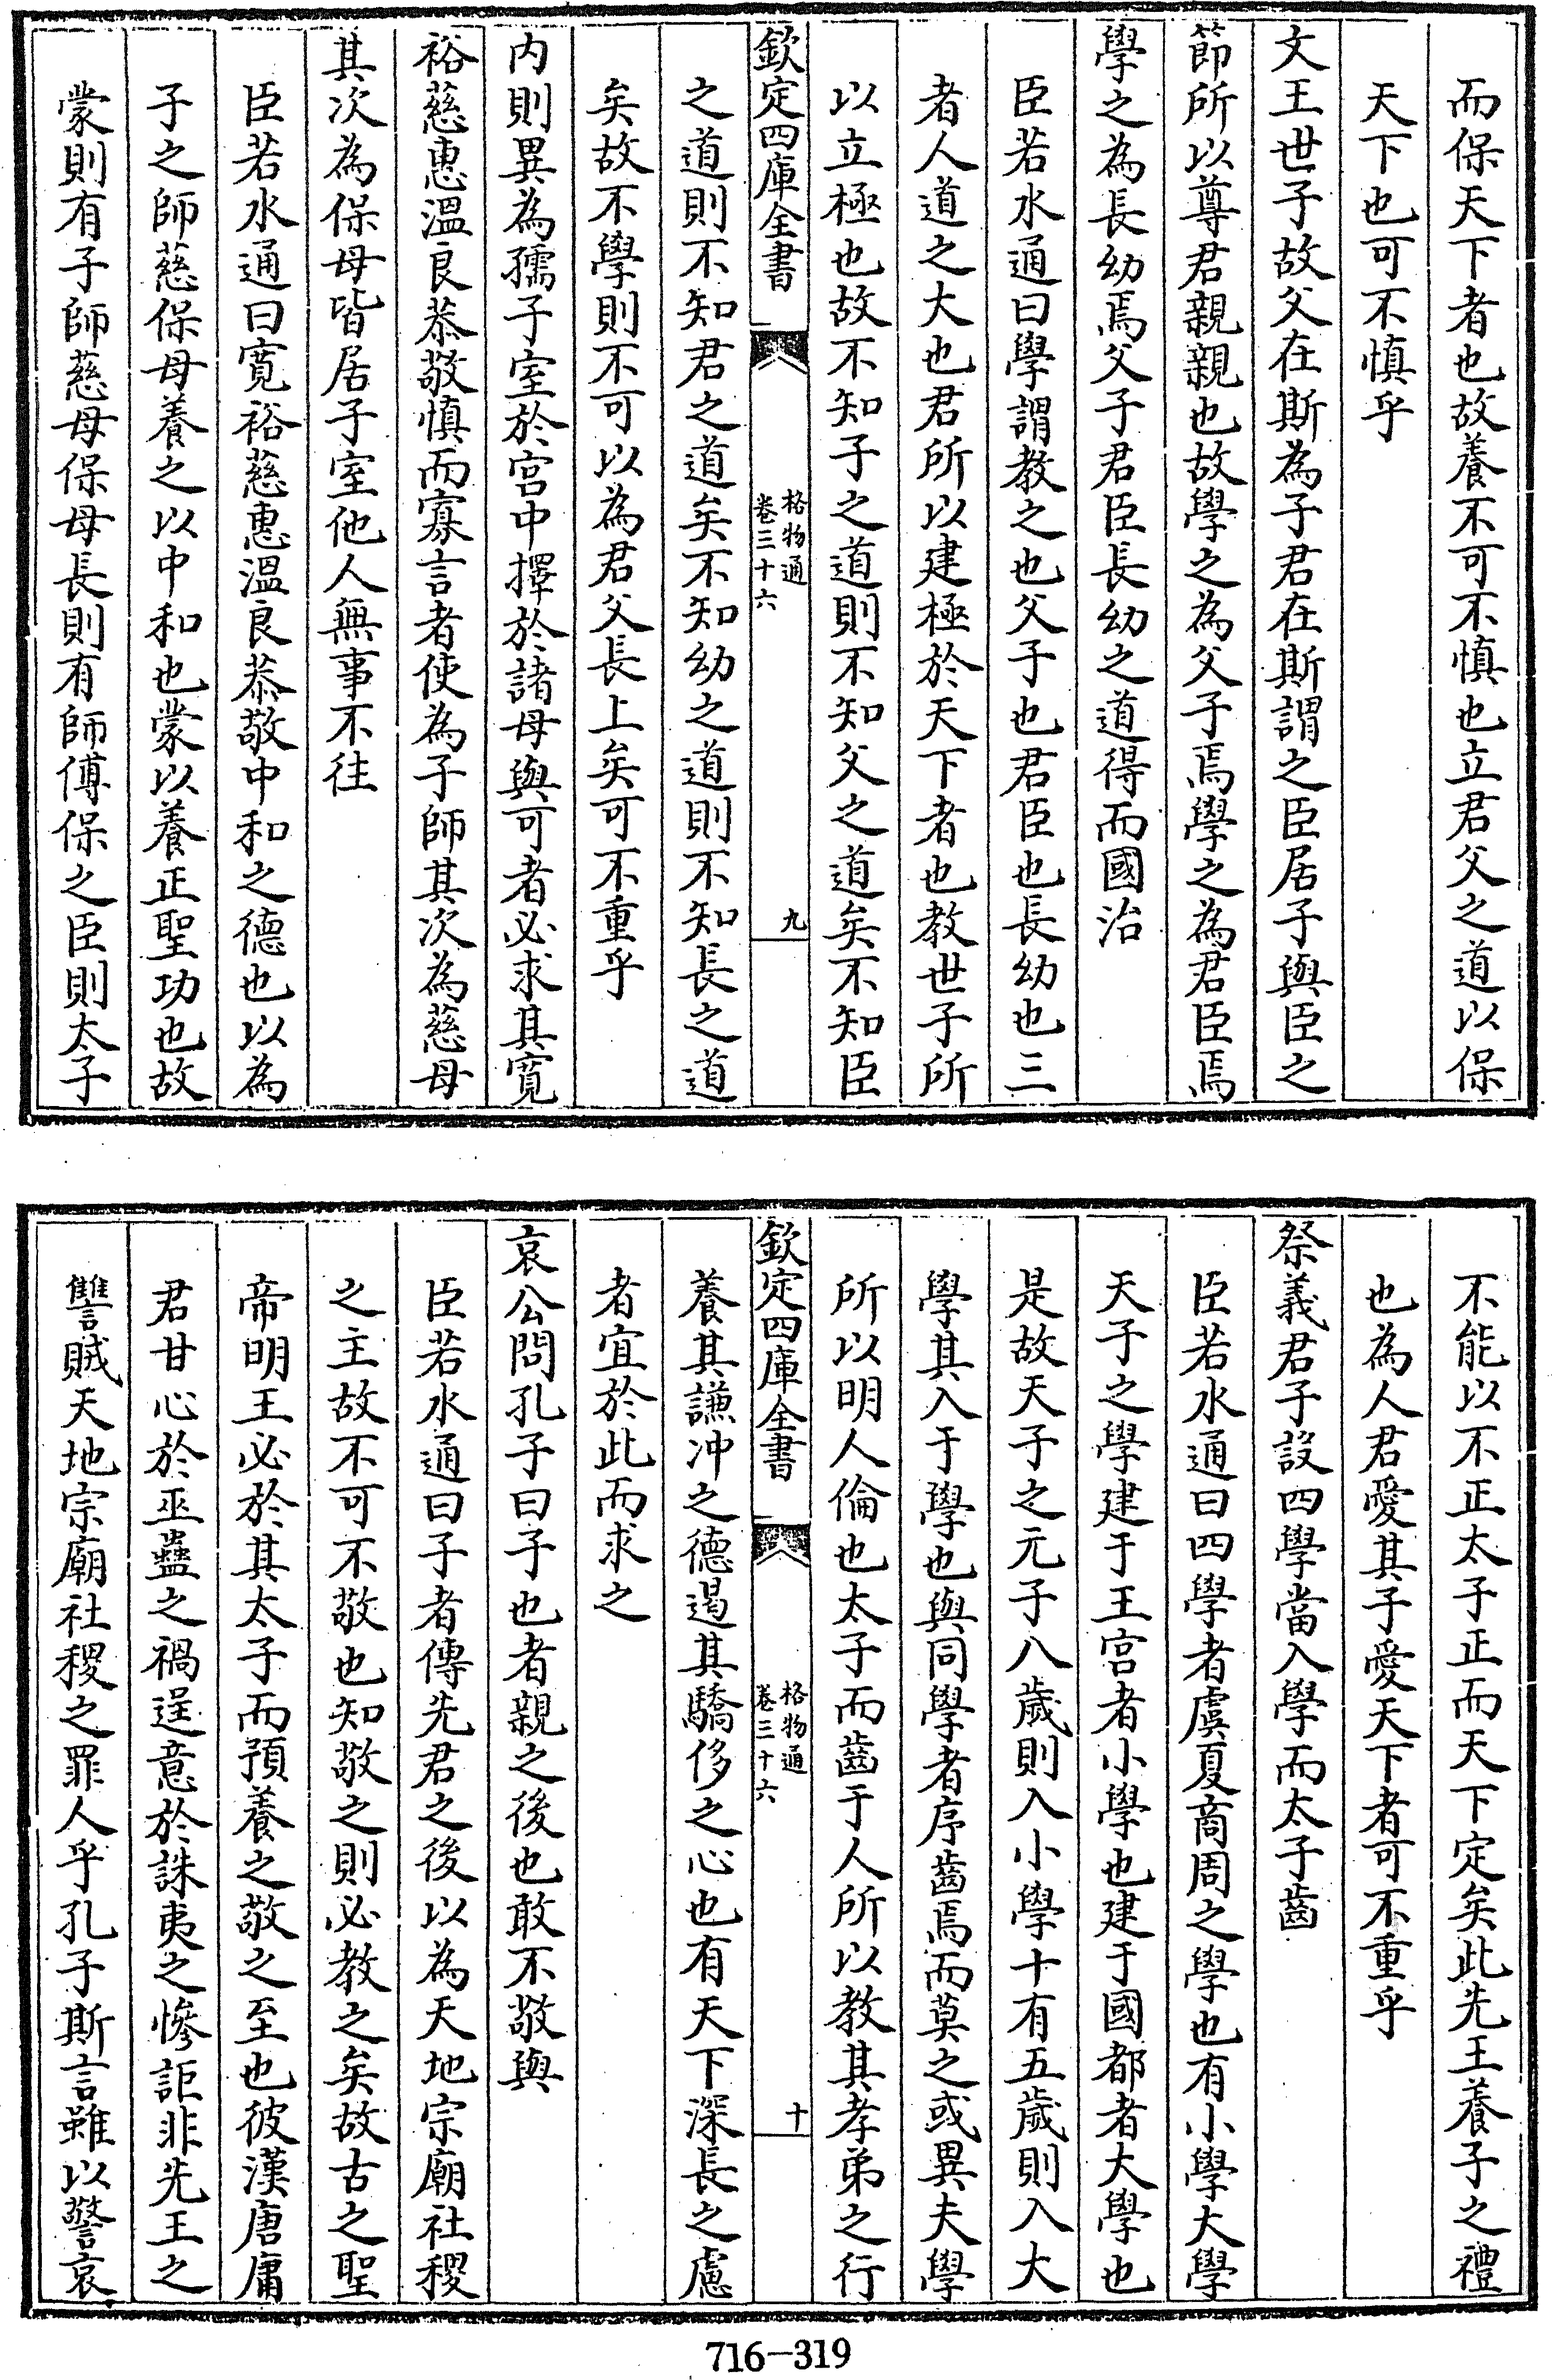 而保天下者也故養不可不慎也立君父之道以保
天下也可不慎乎
文王世子故父在斯為子君在斯謂之臣居子與臣之
節所以尊君親親也故學之為父子焉學之為君臣焉
學之為長幼焉父子君臣長幼之道得而國治
臣若水通曰學謂教之也父子也君臣也長幼也三
者人道之大也君所以建極於天下者也教世子所
以立極也故不知子之道則不知父之道矣不知臣
欽定四庫全書
格物通
卷三十六
九
之道則不知君之道矣不知幼之道則不知長之道
矣故不學則不可以為君父長上矣可不重乎
内則異為孺子室於宮中擇於諸母與可者必求其寛
裕慈惠溫良恭敬慎而寡言者使為子師其次為慈母
其次為保母皆居子室他人無事不往
臣若水通曰寛裕慈惠溫良恭敬中和之德也以為
子之師慈保母養之以中和也蒙以養正聖功也故
蒙則有子師慈母保母長則有師傅保之臣則太子
不能以不正太子正而天下定矣此先王養子之禮
也為人君愛其子愛天下者可不重乎
祭義君子設四學當入學而太子齒
臣若水通曰四學者虞夏商周之學也有小學大學
天子之學建于王宮者小學也建于國都者大學也
是故天子之元子八歲則入小學十有五歲則入大
學其入于學也與同學者序齒焉而莫之或異夫學
所以明人倫也太子而齒于人所以教其孝弟之行
欽定四庫全書
格物通
卷三十六
十
養其謙冲之德遏其驕侈之心也有天下深長之慮
者宜於此而求之
哀公問孔子曰子也者親之後也敢不敬與
臣若水通曰子者傳先君之後以為天地宗廟社稷
之主故不可不敬也知敬之則必教之矣故古之聖
帝明王必於其太子而預養之敬之至也彼漢唐庸
君甘心於巫蠱之禍逞意於誅夷之慘詎非先王之
讐賊天地宗廟社稷之罪人乎孔子斯言雖以警哀
716-319